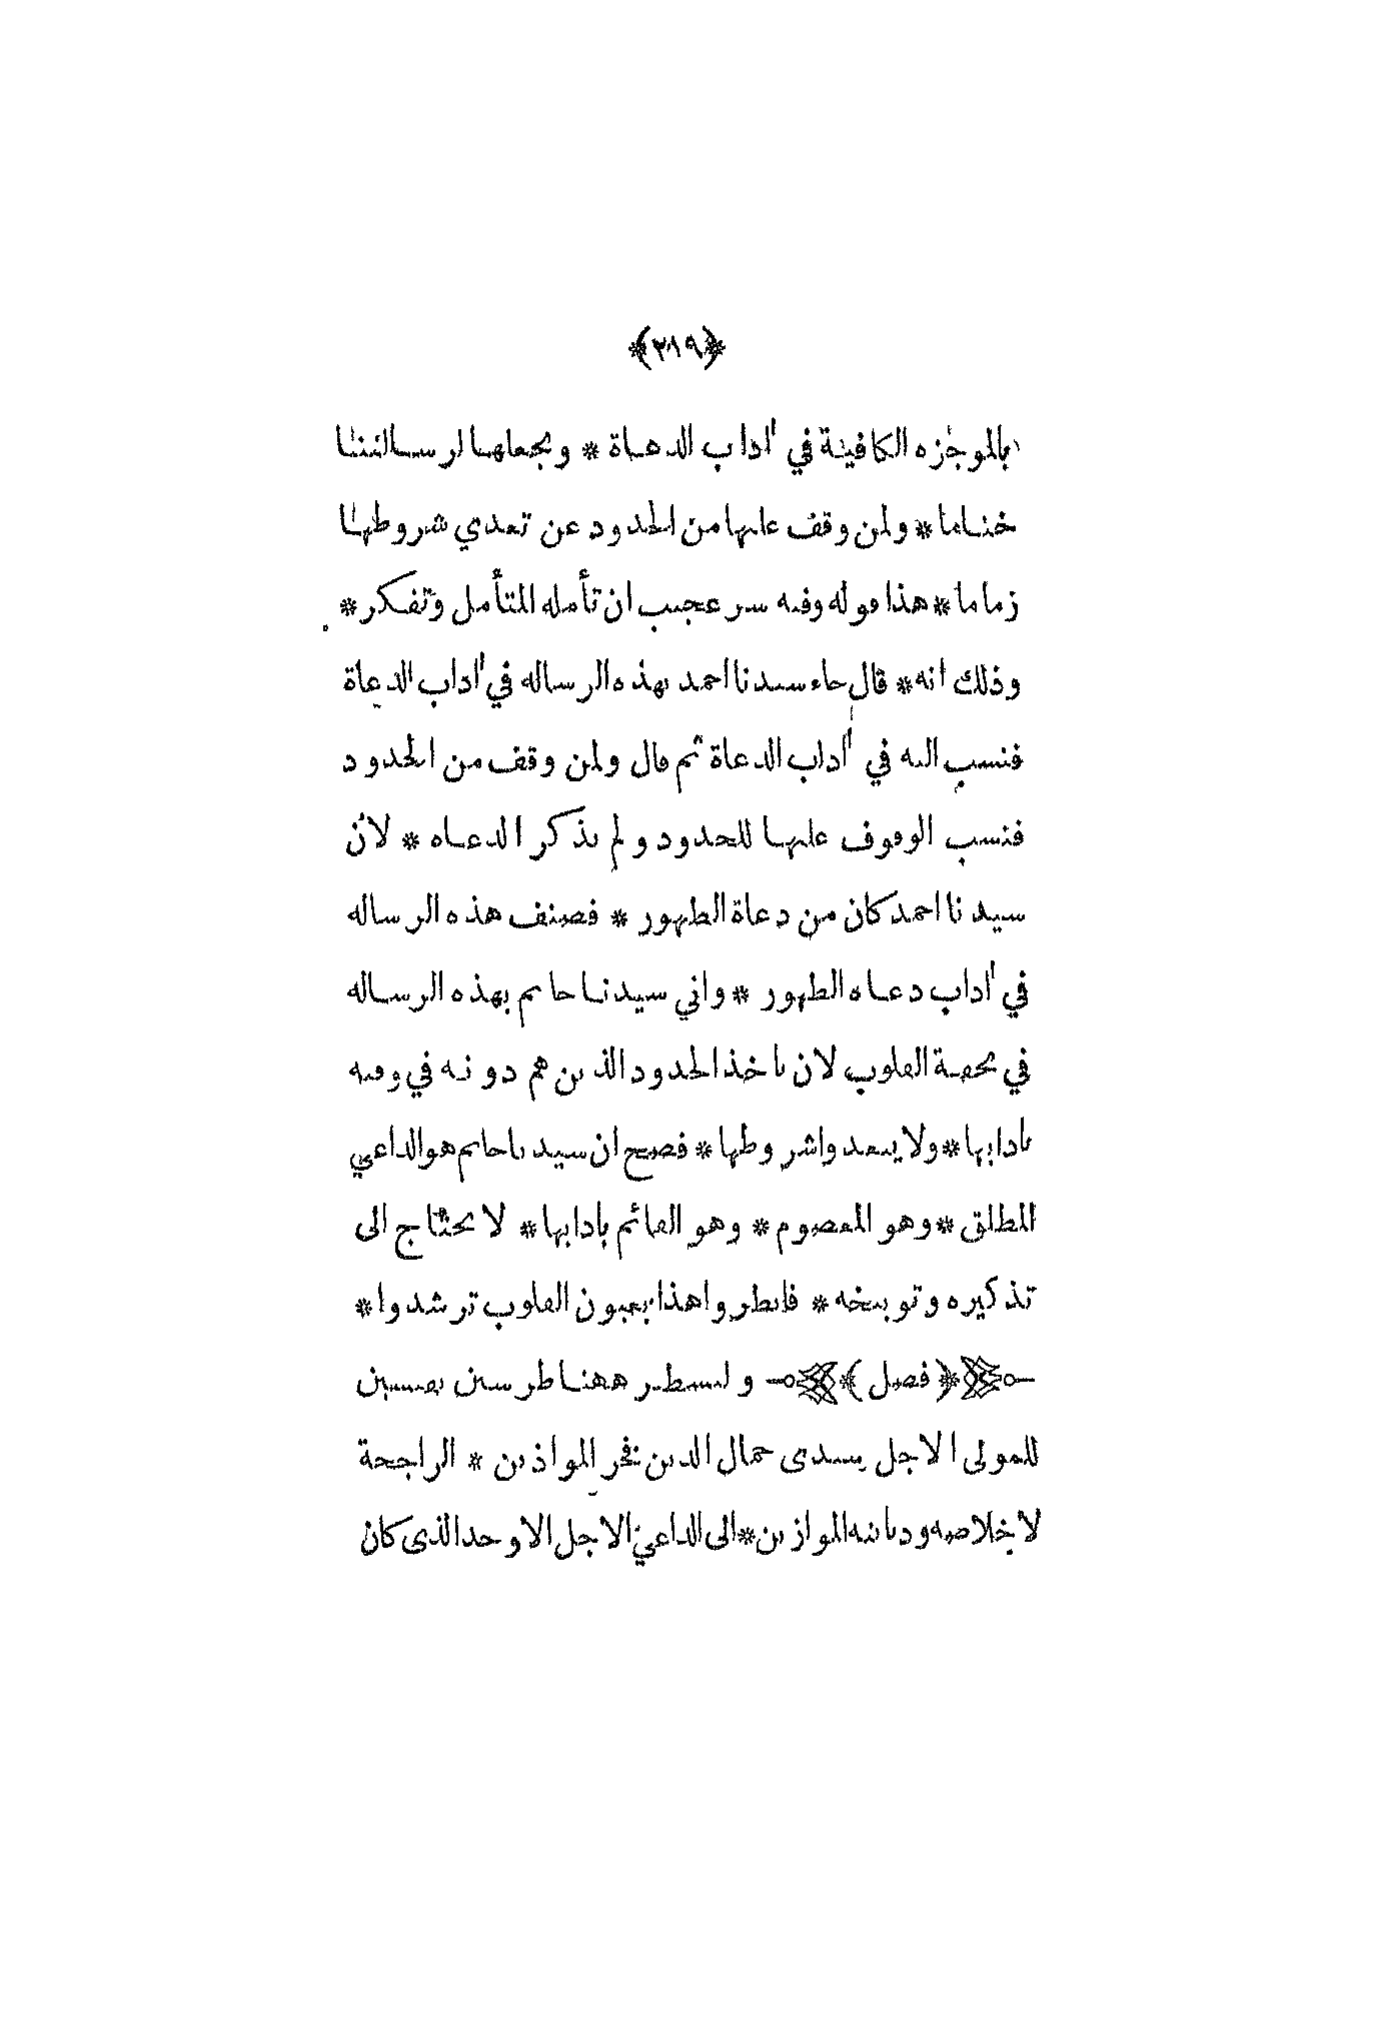 ﴿٢١٩﴾
بالموجزة الكافية في اداب الدعاة * ونجعلها لرسالتنا
ختاما * ولمن وقف عليها من الحدود عن تعدي شروطها
زماما * هذا قوله وفيه سر عجيب ان تأمله المتأمل وتفكر *
وذلك انه * قال جاء سيدنا احمد بهذه الرسالة في اداب الدعاة
فنسب اليه في اداب الدعاة ثم قال ولمن وقف من الحدود
فنسب الوقوف عليها للحدود ولم يذكر الدعاه * لان
سيدنا احمد كان من دعاة الظهور * فصنف هذه الرساله
في اداب دعاه الظهور * واتي سيدنا حاتم بهذه الرساله
في تحفة القلوب لان ياخذ الحدود الذين هم دونه في وقته
بادابها * ولا يتعدوا شروطها * فصح ان سيدنا حاتم هو الداعي
المطلق * وهو المعصوم * وهو القائم بادابها * لا يحتاج الى
تذكيره وتوبيخه * فانظروا هذا بعيون القلوب ترشدوا *
﴿ فصل ﴾ ولنسطر ههنا طرسين نفيسين
للمولى الاجل سيدى جمال الدين فخر المواذين * الراجحة
لاخلاصه وديانته الموازين * الى الداعي الاجل الاوحد الذى كان